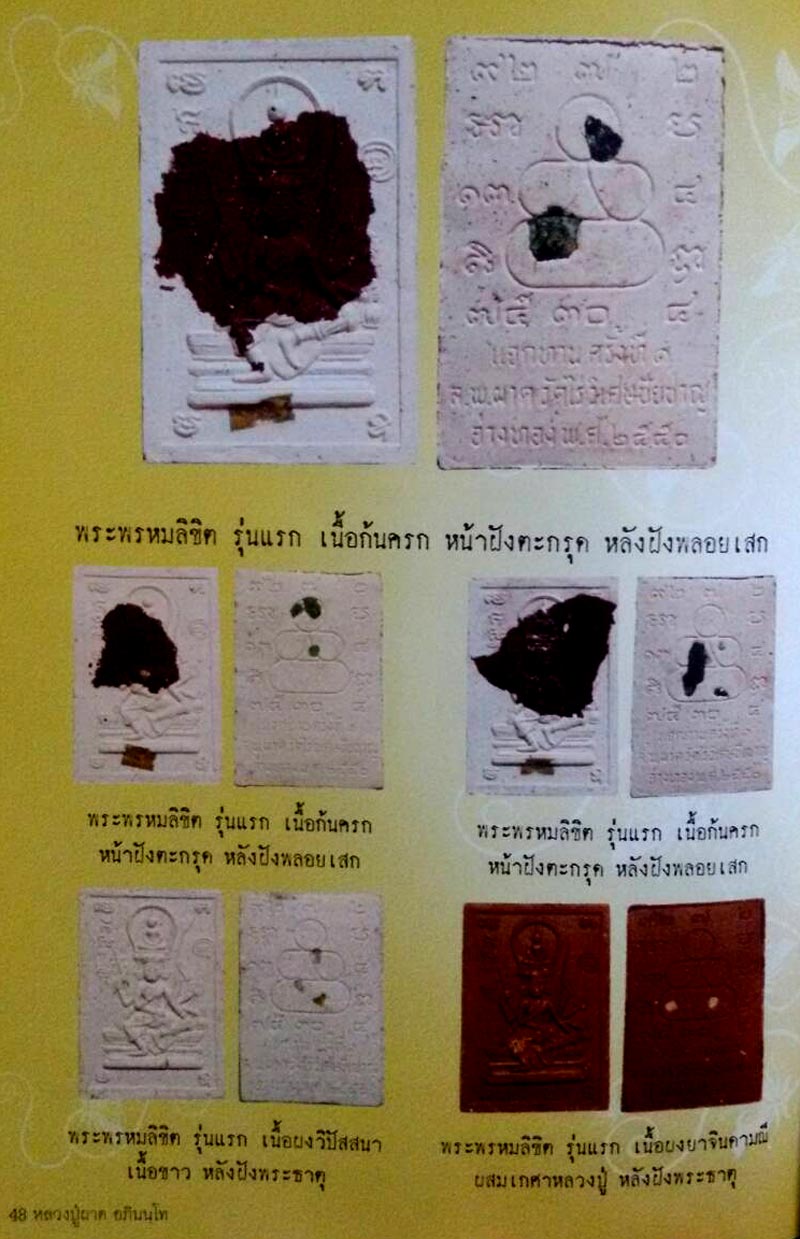 ๗๒ ๓ ๒
๑๓ ๔
๗๕ ๓๐ ๔
แจกทาน ครั้งที่ ๑
อ่างทอง พ.ศ.๒๕๕๐
พระพรหมลิขิต รุ่นแรก เนื้อก้นครก หน้าฝังตะกรุด หลังฝังพลอยเสก
พระพรหมลิขิต รุ่นแรก เนื้อก้นครก
หน้าฝังตะกรุด หลังฝังพลอยเสก
พระพรหมลิขิต รุ่นแรก เนื้อก้นครก
หน้าฝังตะกรุด หลังฝังพลอยเสก
พระพรหมลิขิต รุ่นแรก เนื้อผงวิปัสสนา
เนื้อขาว หลังฝังพระธาตุ
พระพรหมลิขิต รุ่นแรก เนื้อผงยาจินดามณี
ผสมเกศาหลวงปู่ หลังฝังพระธาตุ
48 หลวงปู่ผาด อภินนฺโท